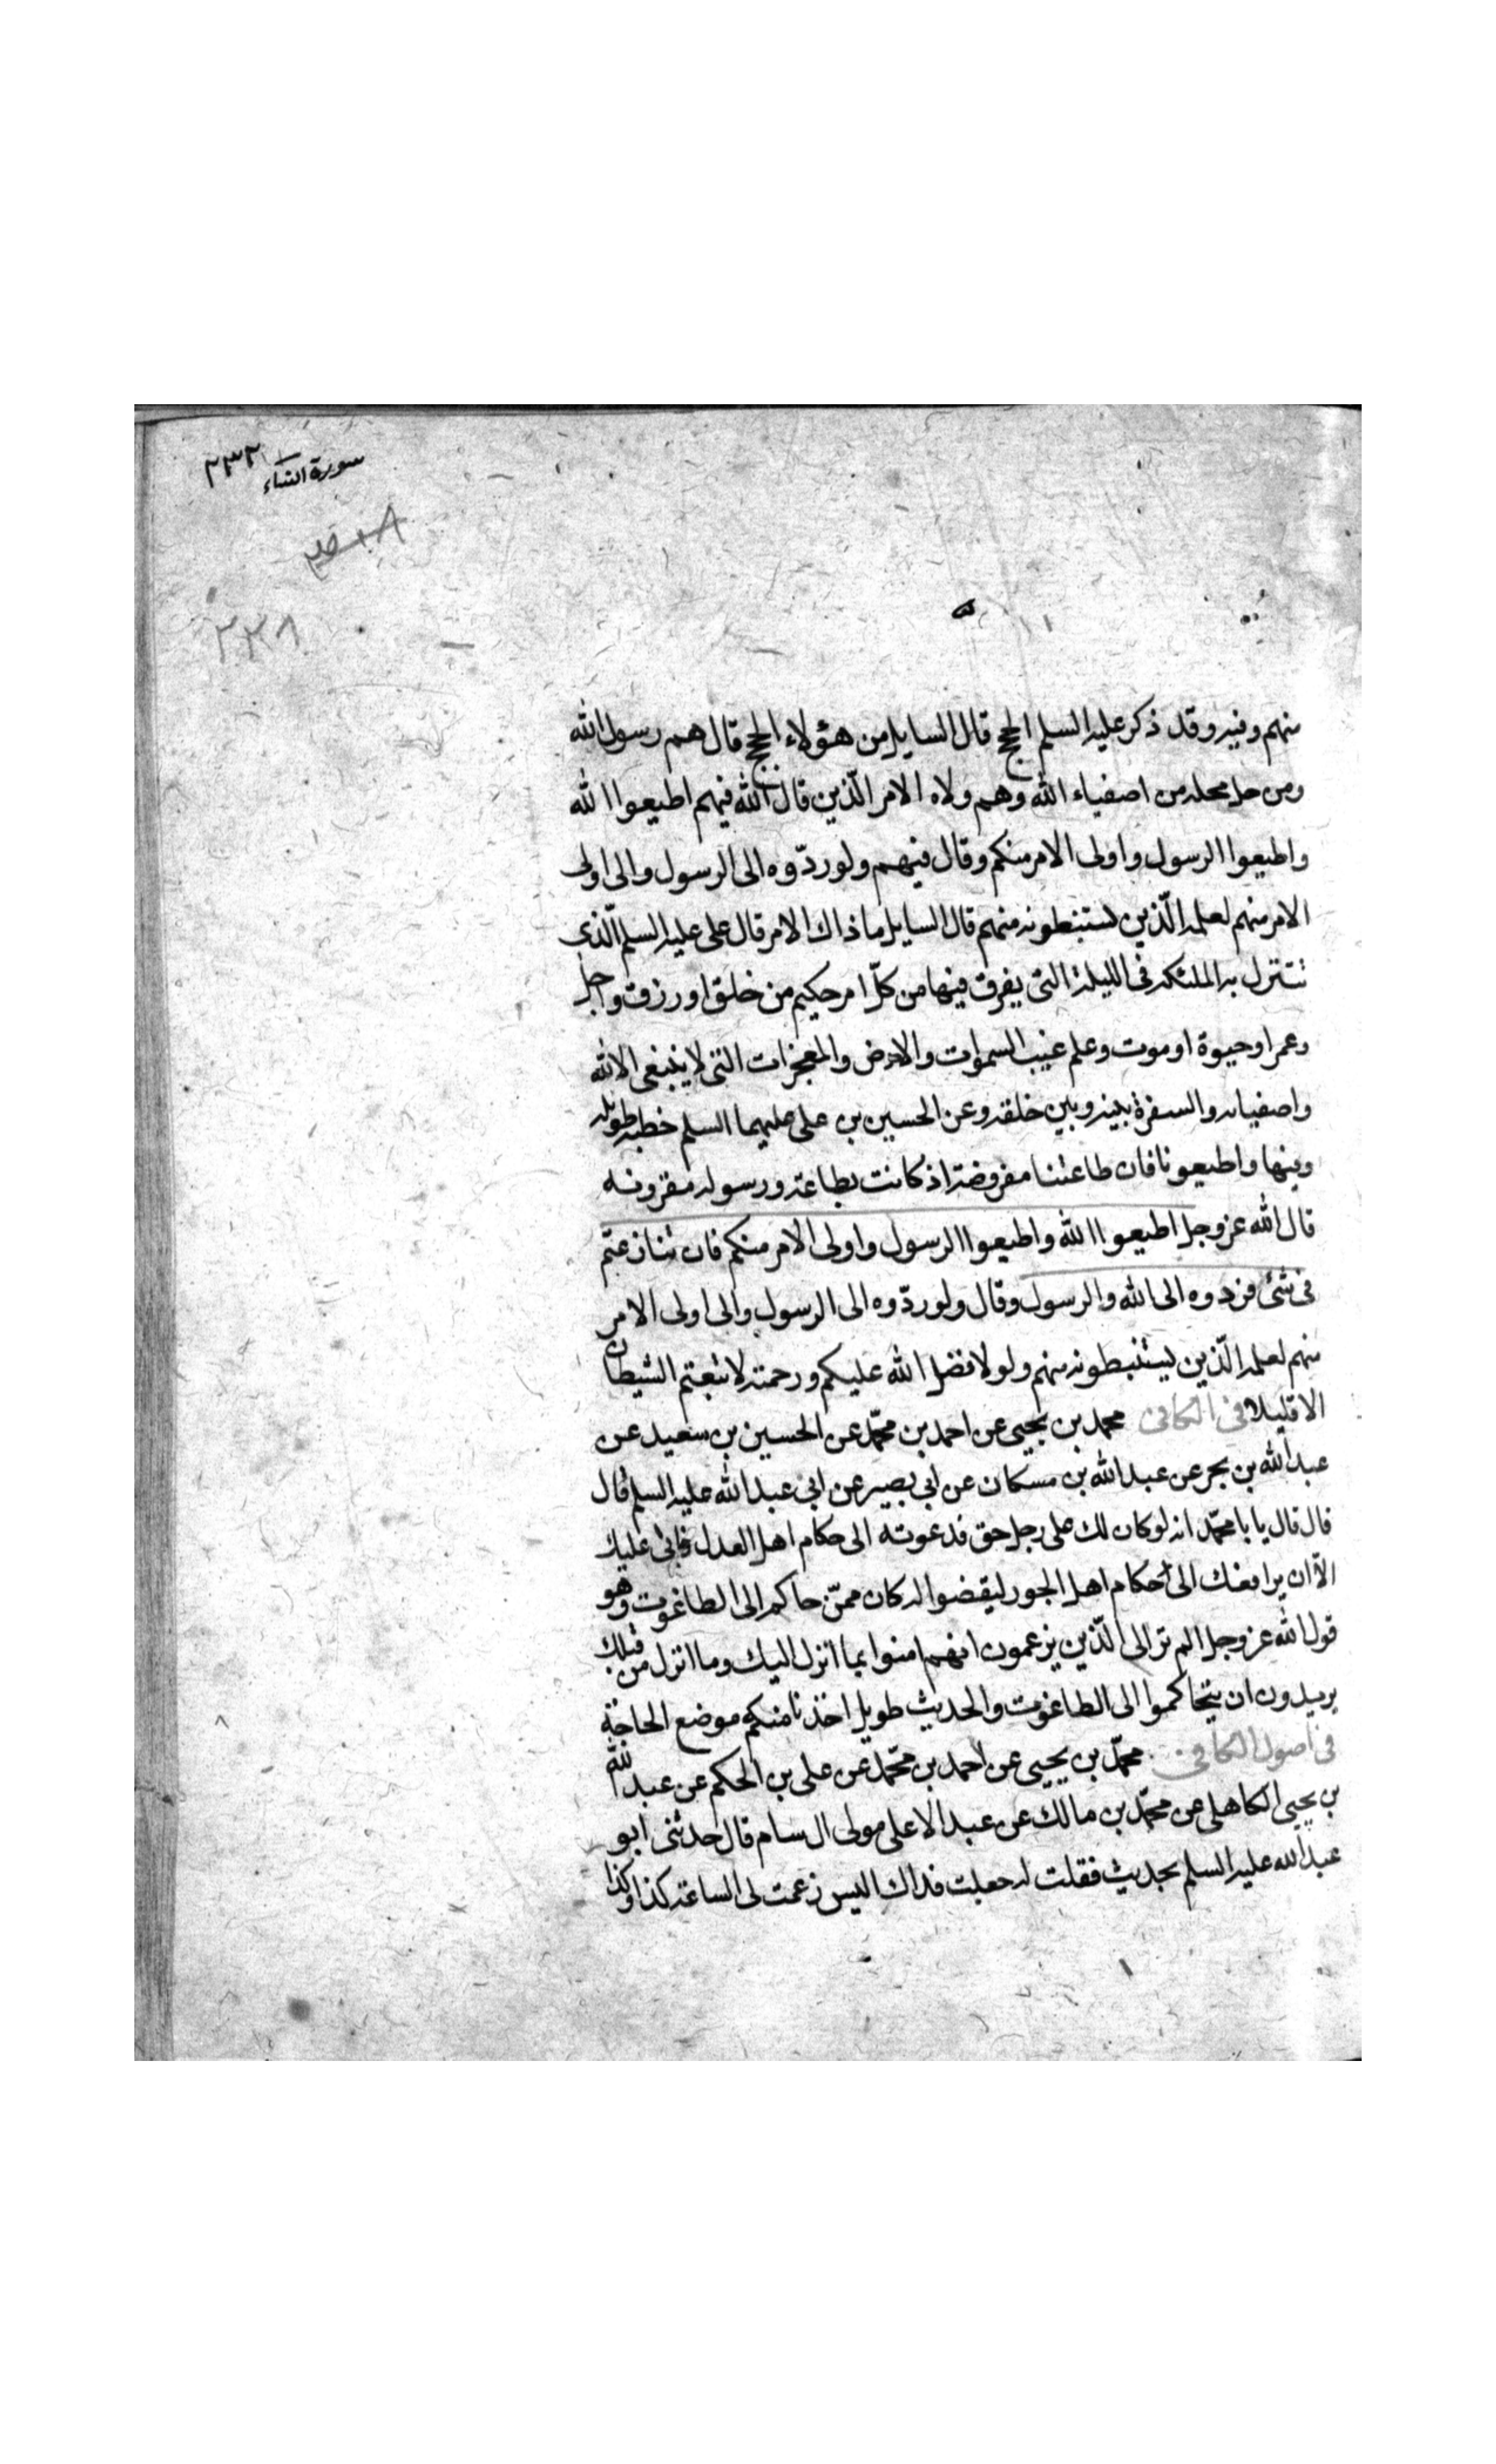 سورة النساء ٢٣٢
٢٣٨
منهم وفيه وقد ذكر عليه السلم الحجج قال السايل من هؤلاء الحجج قال هم رسول الله
ومن حل محله من اصفياء الله وهم ولاه الامر الّذين قال الله فيهم اطيعوا الله
واطيعوا الرسول واولى الامر منكم وقال فيهم ولو ردّوه الى الرسول والى اولى
الامر منهم لعلمه الّذين يستنبطونه منهم قال السايل ما ذاك الامر قال على عليه السلم الّذى
تتنزل به الملئكه فى الليلة التى يفرق فيها من كلّ امر حكيم من خلق او رزق واجل
وعمر او حيوة او موت وعلم غيب السموات والارض والمعجزات التى لا ينبغى الا لله
واصفيائه والسفرة بينه وبين خلقه وعن الحسين بن على عليهما السلم خطبه طويله
وفيها واطيعونا فان طاعتنا مفروضة اذ كانت بطاعة ورسوله مقرونه
قال الله عز وجل اطيعوا الله واطيعوا الرسول واولى الامر منكم فان تنازعتم
فى شئ فردوه الى الله والرسول وقال ولو ردّوه الى الرسول والى اولى الامر
منهم لعلمه الّذين يستنبطونه منهم ولولا فضل الله عليكم ورحمته لاتبعتم الشيطان
الا قليلا فى الكافى محمد بن يحيى عن احمد بن محمّد عن الحسين بن سعيد عن
عبد الله بن بحر عن عبد الله بن مسكان عن ابى بصير عن ابى عبد الله عليه السلم قال
قال قال يا با محمّد انه لو كان لك على رجل حق فدعوته الى حكام اهل العدل فابى عليك
الّا ان يرافعك الى احكام اهل الجور ليقضوا له كان ممّن حاكم الى الطاغوت وهو
قول الله عز وجل الم تر الى الّذين يزعمون انهم امنوا بما انزل اليك وما انزل من قبلك
يريدون ان يتحاكموا الى الطاغوت والحديث طويل اخذنا منكم موضع الحاجة
فى اصول الكافى محمّد بن يحيى عن احمد بن محمّد عن على بن الحكم عن عبد الله
بن يحيى الكاهلى عن محمّد بن مالك عن عبد الاعلى مولى ال سام قال حدثنى ابو
عبد الله عليه السلم بحديث فقلت له جعلت فداك اليس زعمت لى الساعة كذا وكذا